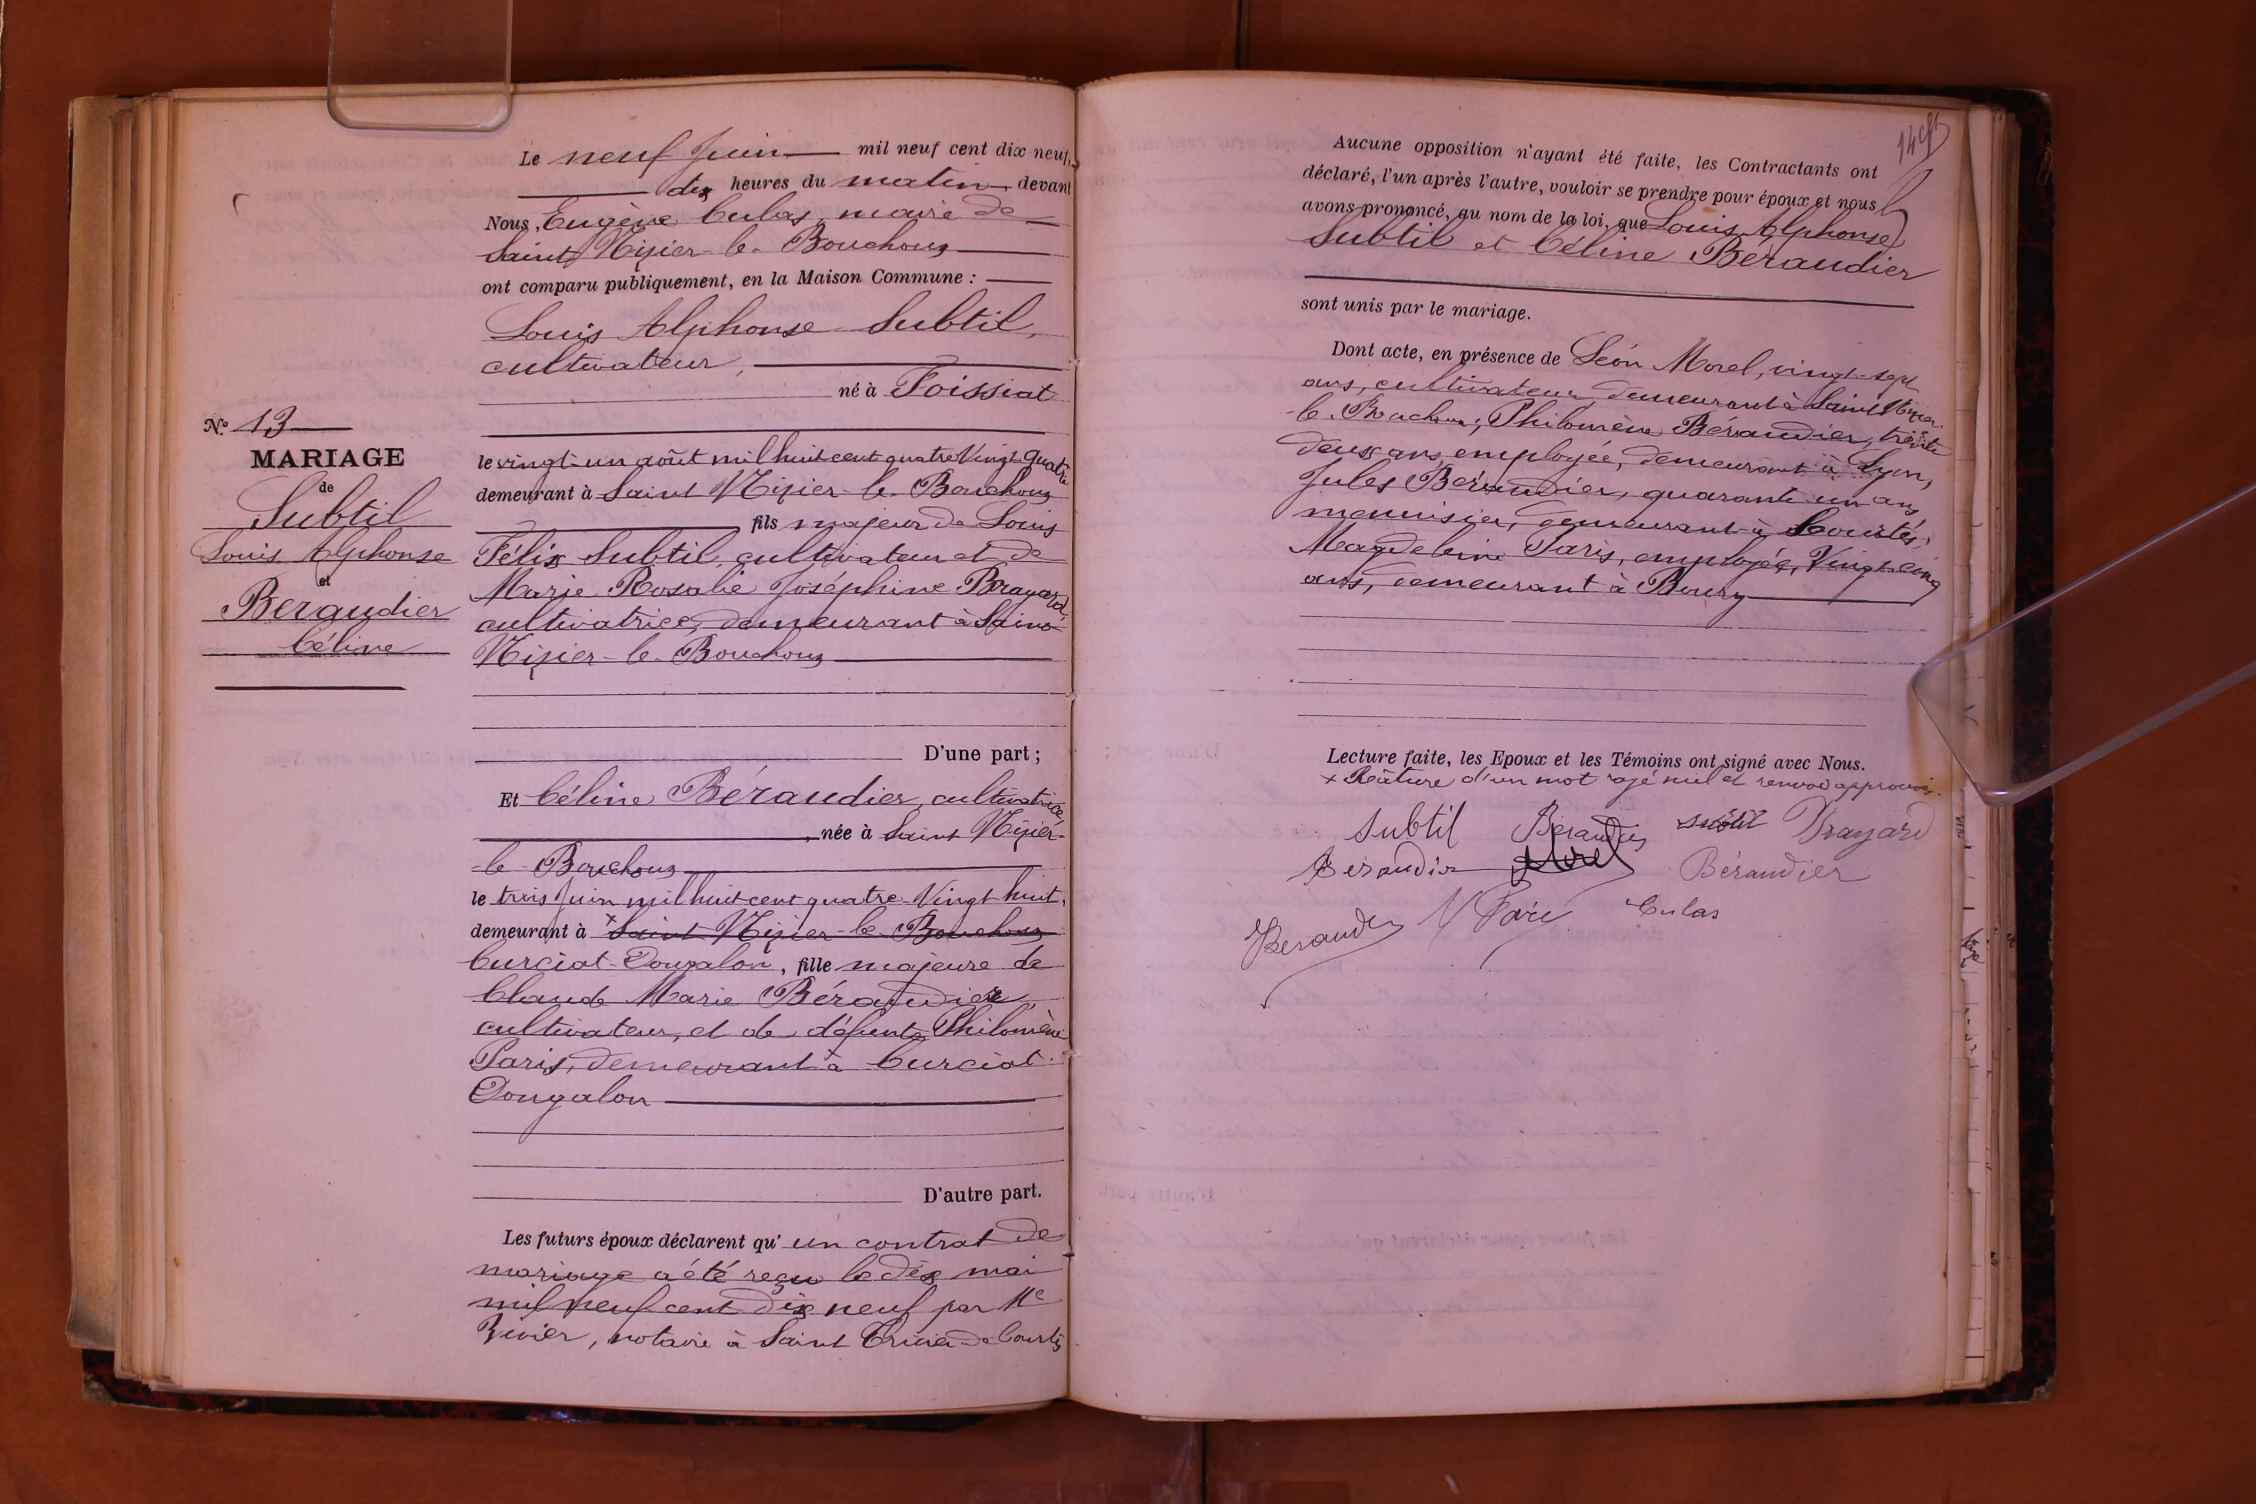 Le neuf Juin mil neuf cent dix neuf,
dix heures du matin, devant
Nous, Eugène Culas, maire de
Saint Nizier-le-Bouchoux
ont comparu publiquement, en la Maison Commune :
Louis Alphonse Subtil,
cultivateur,
né à Foissiat
le vingt-un août mil huit cent quatre Vingt quatre
demeurant à Saint Nizier-le-Bouchoux
fils majeur de Louis
Félix Subtil, cultivateur et de
Marie Rosalie Joséphine Brayard,
cultivatrice, demeurant à Saint
Nizier-le-Bouchoux
D'une part ;
Et Céline Béraudier, cultivatrice,
née à Saint Nizier-
-le-Bouchoux
le trois Juin mil huit cent quatre-Vingt huit,
demeurant à × Saint Nizier-le-Bouchoux
Curciat-Dongalon, fille majeure de
Claude Marie Béraudier,
cultivateur, et de défunte Philomène
Paris, demeurant à Curciat-
Dongalon
D'autre part.
Les futurs époux déclarent qu' un contrat de
mariage a été reçu le dix mai
mil neuf cent dix neuf par Me
Rivier, notaire à Saint Trivier-de-Courtes
N.º 13
MARIAGE
de
Subtil
Louis Alphonse
et
Beraudier
Céline
Aucune opposition n'ayant été faite, les Contractants ont
déclaré, l'un après l'autre, vouloir se prendre pour époux et nous
avons prononcé, au nom de la loi, que Louis Alphonse
Subtil et Céline Béraudier
sont unis par le mariage.
Dont acte, en présence de Léon Morel, vingt-sept
ans, cultivateur, demeurant à Saint Nizier-
-le-Bouchoux; Philomène Béraudier, trente
deux ans, employée, demeurant à Lyon,
Jules Béraudier, quarante un ans
menuisier, demeurant à Courtes,
Magdeleine Paris, employée, Vingt cinq
ans, demeurant à Bourg
Lecture faite, les Epoux et les Témoins ont signé avec Nous.
× Rature d'un mot rayé nul et renvoi approuvés.
Subtil Béraudier Subtil Brayard
Béraudier Morel Béraudier
Béraudier M Paris Culas